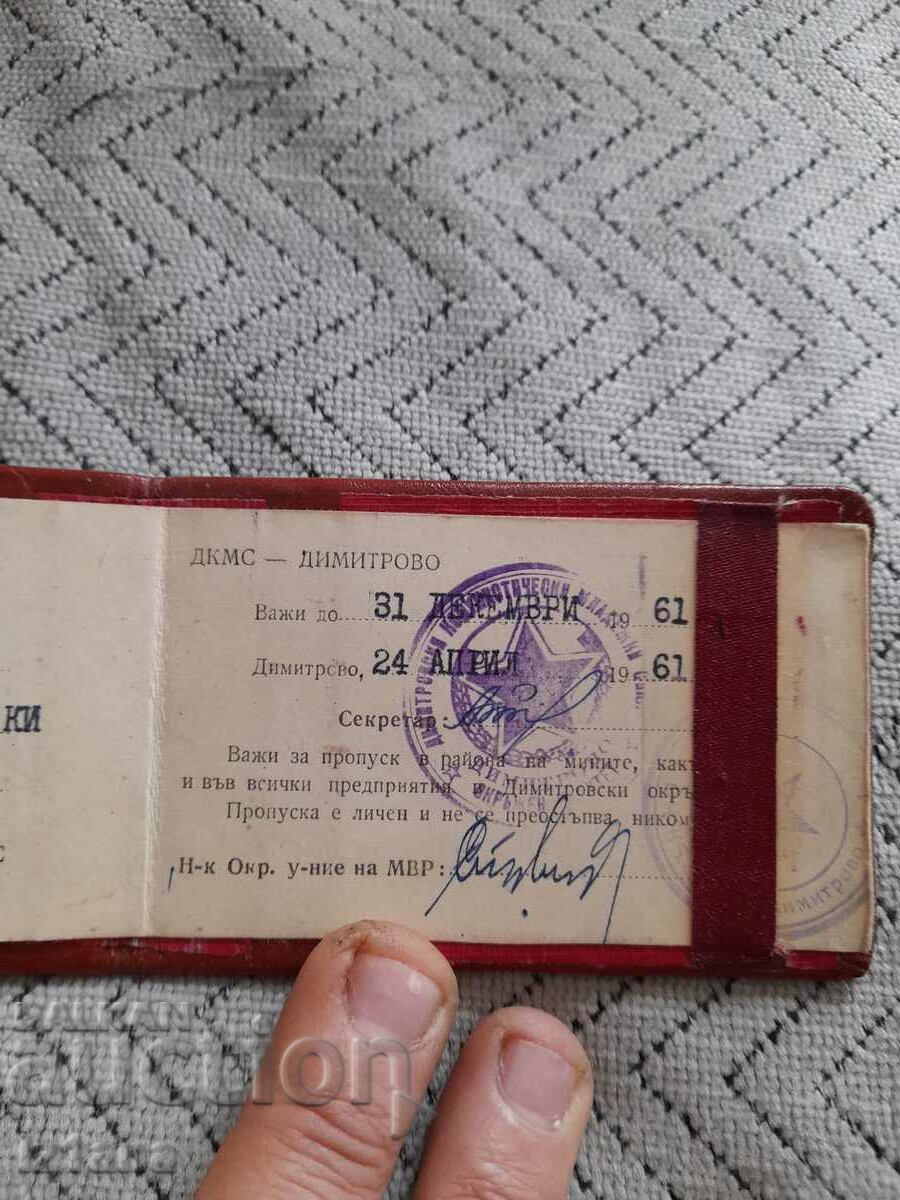 КИ
ДКМС — ДИМИТРОВО
Важи до 31 ДЕКЕМВРИ 1961
Димитрово, 24 АПРИЛ 1961
Секретар:
Важи за пропуск в района на мините, как
и във всички предприятия в Димитровски окръ
Пропуска е личен и не се преостъпва ником
Н-к Окр. у-ние на МВР:
ДИМИТРОВСКИ КОМУНИСТИЧЕСКИ МЛАДЕЖКИ
ДИМИТРОВО
ОКРЪЖЕН
Димитрово
BALKAN
auction